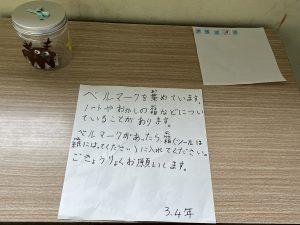 ベルマークを集めています。
ノートやおかしの箱などについ
ていることがあります。
ベルマークがあったら、箱(シールは
紙にはってください)に入れてください。
ごきょうりょくお願いします。
3.4年